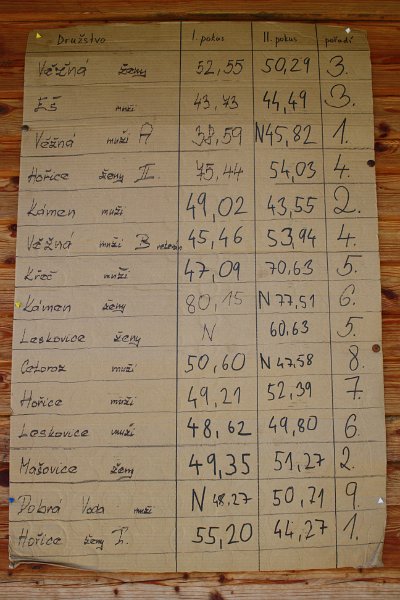 Družstvo I. pokus II. pokus pořadí
Věžná ženy 52,55 50,29 3.
Eš muži 43,73 44,49 3.
Věžná muži A 38,59 N45,82 1.
Hořice ženy II. 75,44 54,03 4.
Kámen muži 49,02 43,55 2.
Věžná muži B 45,46 53,94 4.
Křeč muži 47,09 70,63 5.
Kámen ženy 80,15 N 77,51 6.
Leskovice ženy N 60,63 5.
Cetoraz muži 50,60 N 47,58 8.
Hořice muži 49,21 52,39 7.
Leskovice muži 48,62 49,80 6.
Mašovice ženy 49,35 51,27 2.
Dobrá Voda muži N 48,27 50,71 9.
Hořice ženy I. 55,20 44,27 1.